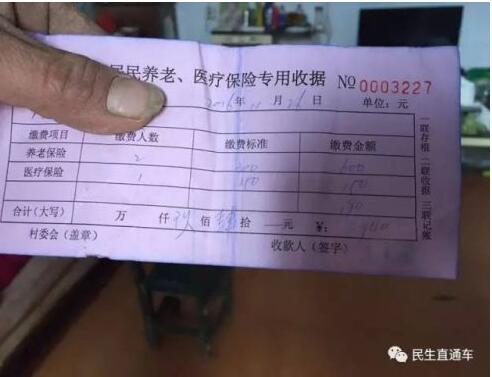 居民养老、医疗保险专用收据 № 0003227
2016年11月26日 单位:元
缴费项目 缴费人数 缴费标准 缴费金额
养老保险 2 600
医疗保险 1 150 150
190
合计(大写) 万 仟 玖 佰 肆 拾 元 ¥: 940
村委会(盖章) 收款人(签字)
一联存根 二联收据 三联记账
民生直通车